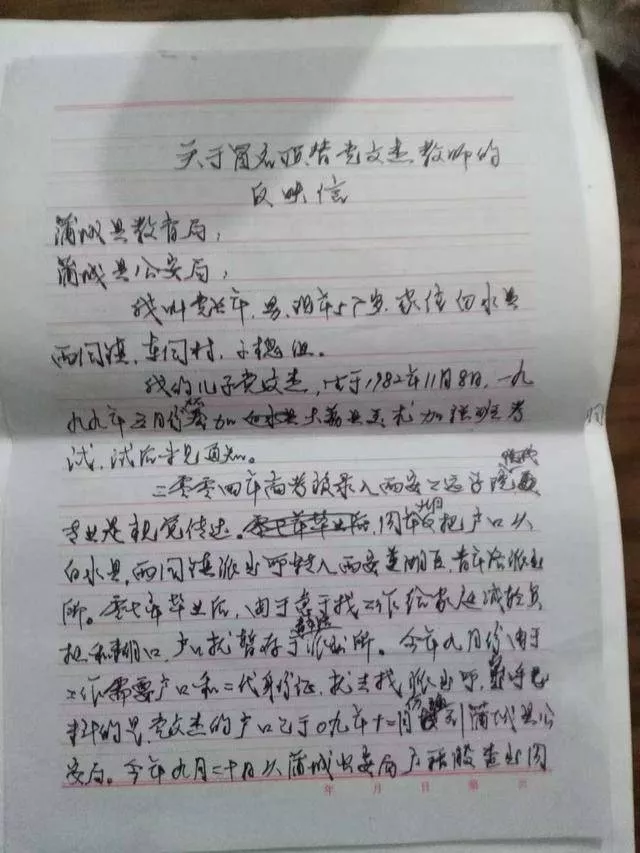 关于冒名顶替党文杰教师的
反映信
蒲城县教育局，
蒲城县公安局；
我叫党兴年，男，现年57岁，家住白水县
西固镇，车问村，子槐组。
我的儿子党文杰，生于1982年11月8日，一九
九九年五月份参加白水县大荔县美术加强班考
试，试后未见通知。
二零零四年高考被录入西安工运学院
专业是视觉传达。同年九月把户口从
白水县，西固镇派出所转入西安莲湖区，青年路派出
所。零七年毕业后，由于急于找工作给家庭减轻负
担和糊口，户口就暂存于派出所。今年九月份由于
工作需要户口和二代身份证，就去找派出所，
料的是党文杰的户口已于09年十二月份到蒲城县公
安局。今年九月二十日从蒲城公安局户籍股查出同
年 月 日 第 页